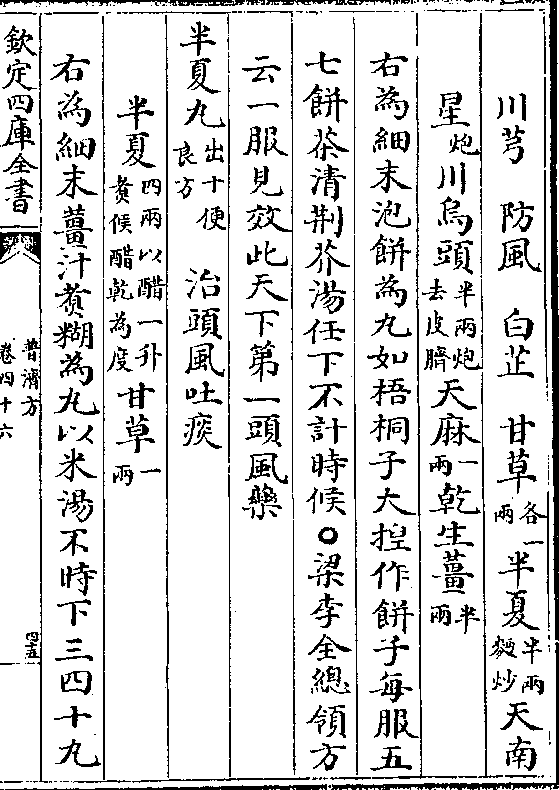 川芎　防風　白芷　甘草各一兩半夏半兩麩炒天南
星炮川烏頭半兩炮去皮臍天麻一兩乾生薑半兩
右為細末泡餅為丸如梧桐子大揑作餅子每服五
七餅茶清荆芥湯任下不計時候○梁李全總領方
云一服見效此天下第一頭風藥
半夏丸出十便良方　治頭風吐痰
半夏四兩以醋一升煑候醋乾為度甘草一兩
右為細末薑汁煑糊為丸以米湯不時下三四十丸
欽定四庫全書
普濟方
卷四十六
四五